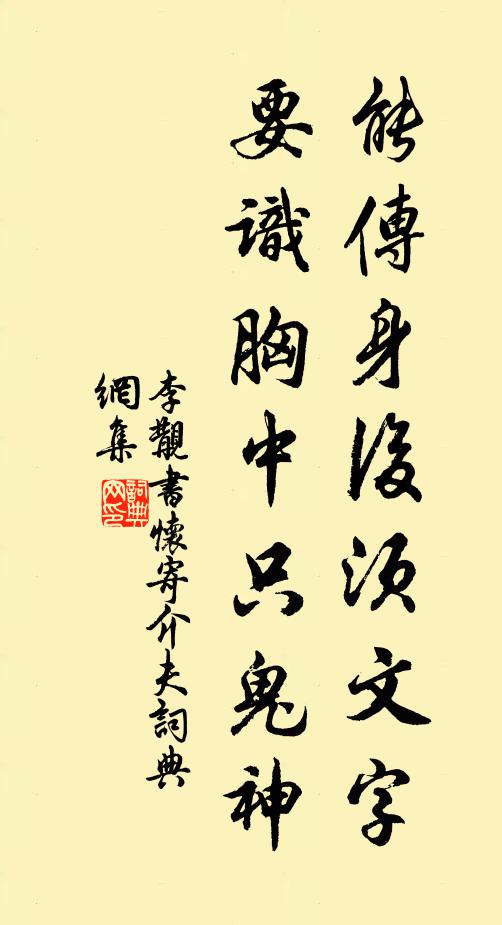 能傳身後須文字
要識胸中只鬼神
李覯書懷寄介夫詞典
網集
詞典
网印